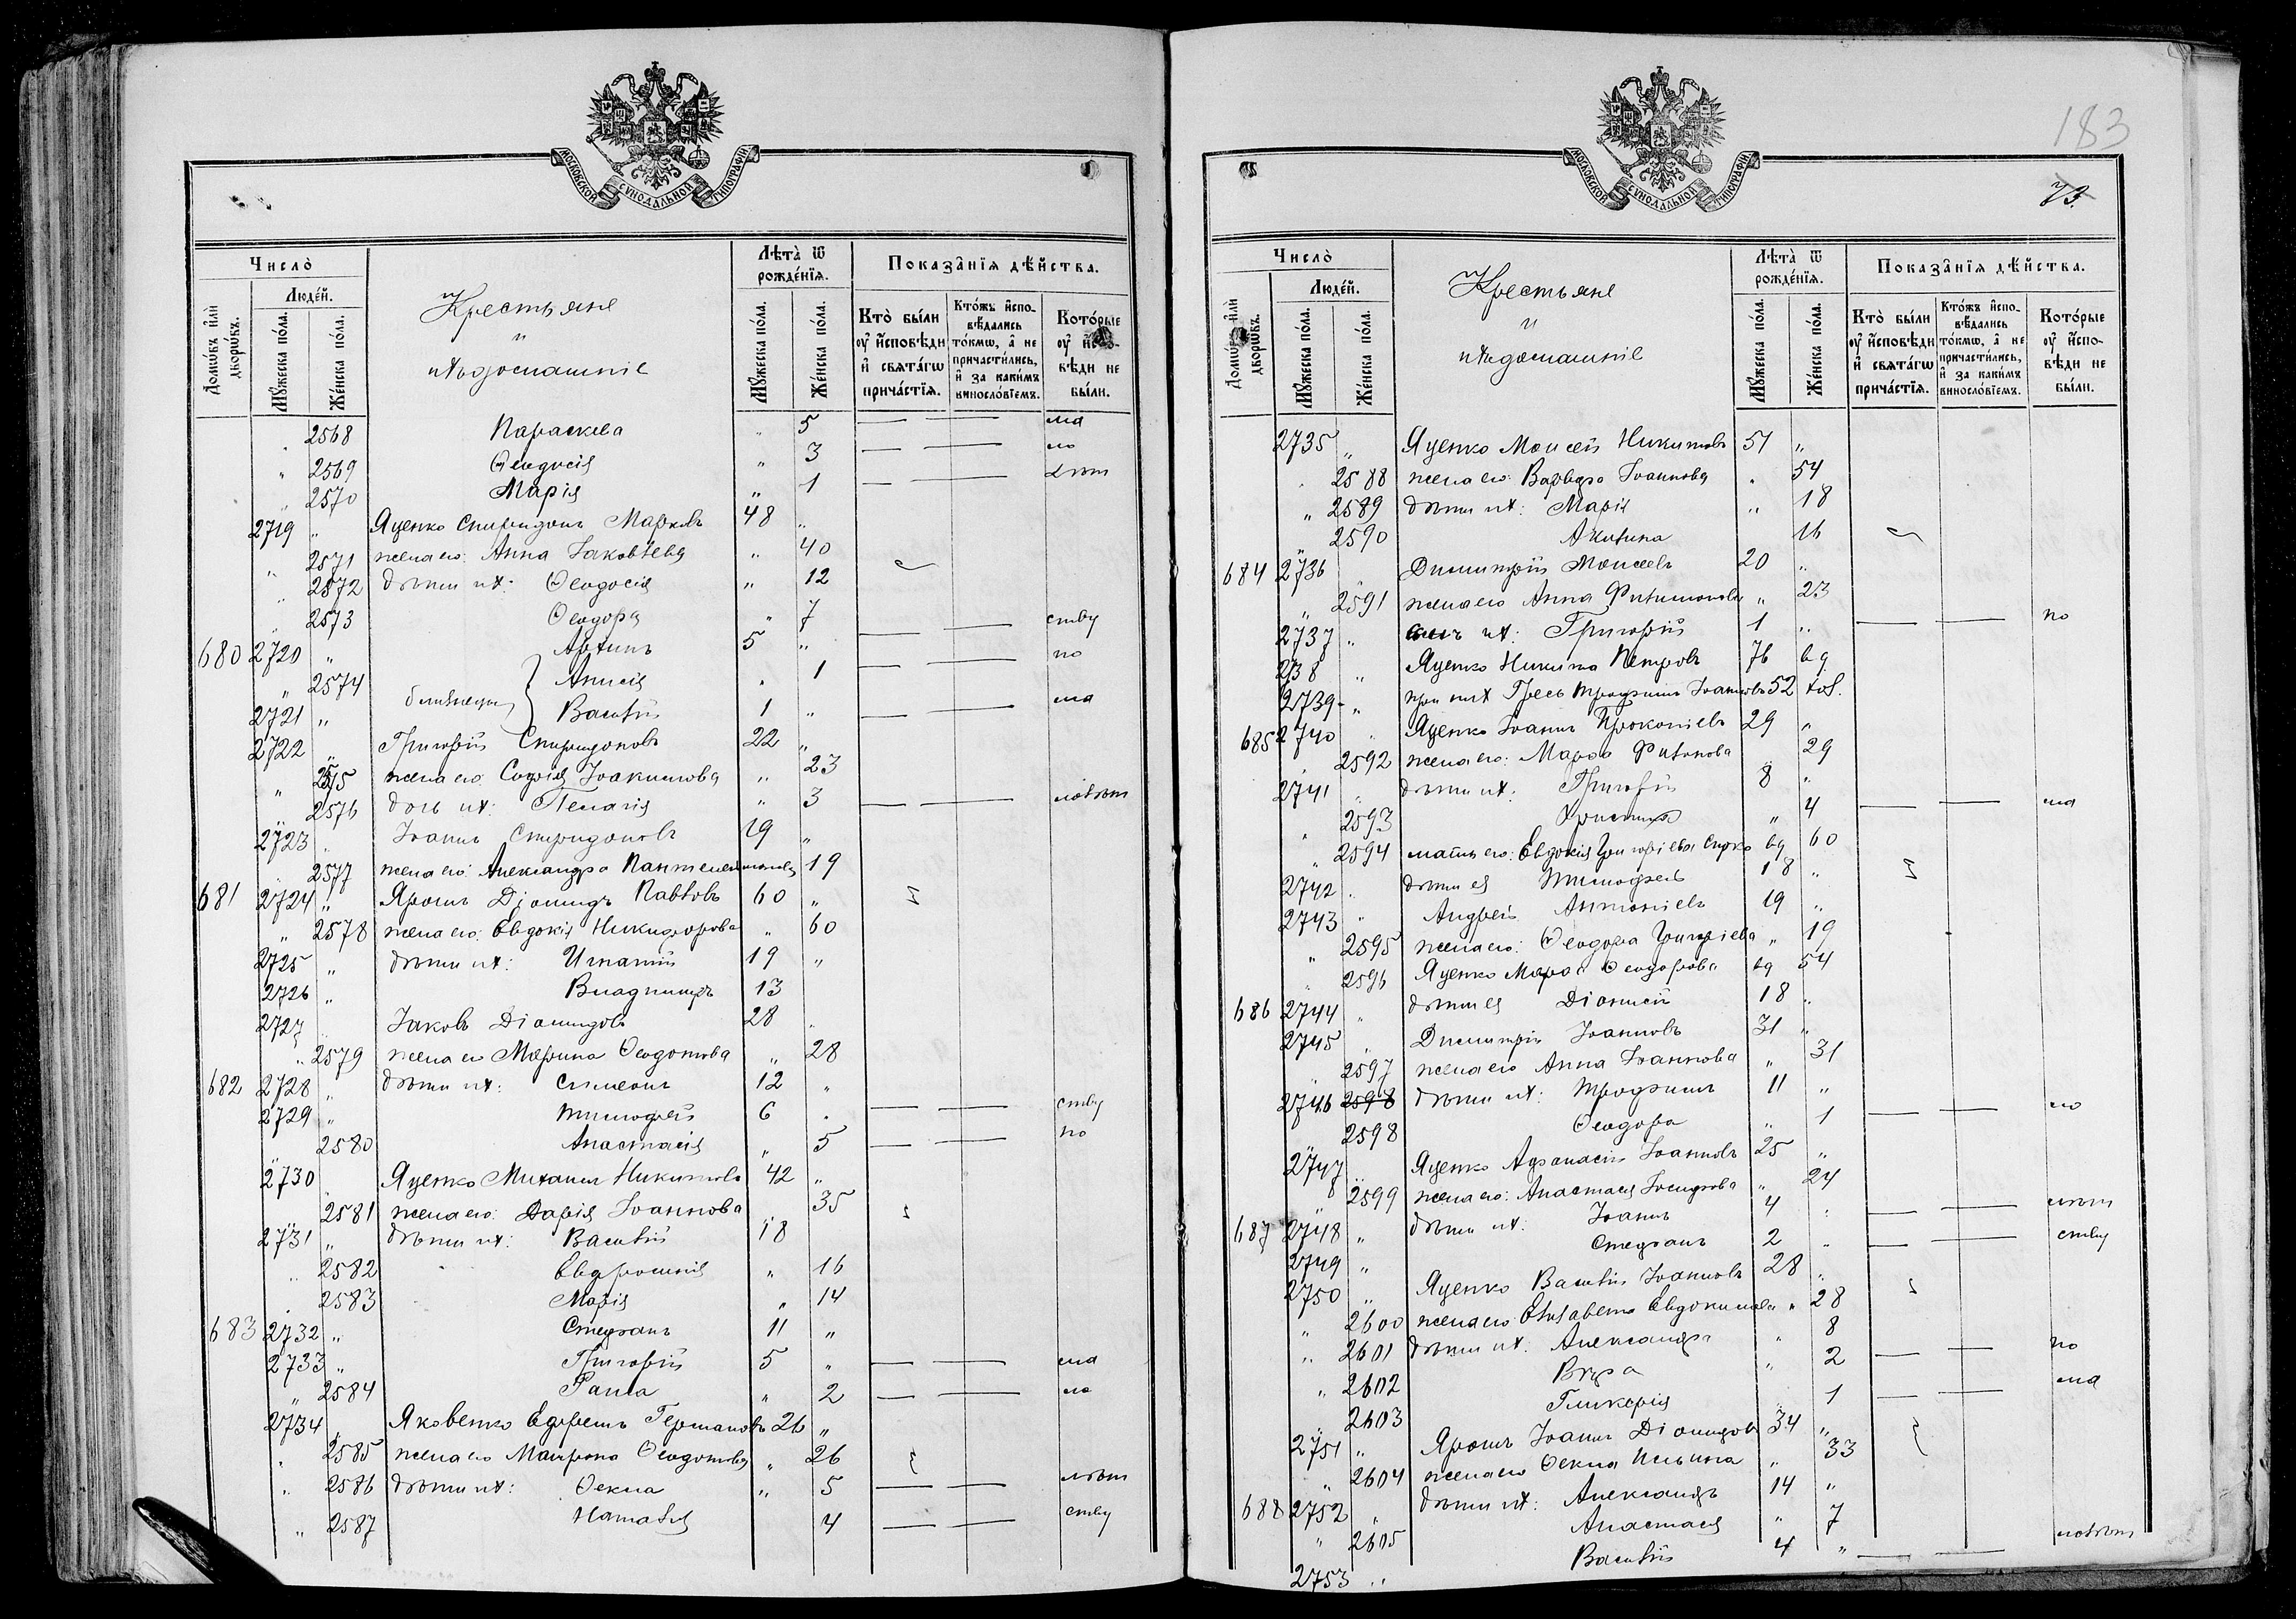 МОСКОВСКОЙ СУНОДАЛЬНОЙ ТИПОГРАФІИ
Число̀
Домѡ́въ и҆лѝ дворѡ́въ.
Люде́й.
Мꙋ́жеска по́ла.
Же́нска по́ла.
Крестьяне
и
ихъ домашніе
Лѣта̀ ѿ рожде́нїѧ.
Мꙋ́жеска по́ла.
Же́нска по́ла.
Показа̑нїѧ дѣ́йства.
Кто̀ бы́ли ᲂу҆ и҆́сповѣди и҆ свѧта́гѡ прича́стїѧ.
Кто́жъ и҆спо-вѣ́дались то́кмѡ, а҆ не причасти́лись, и҆ за каки́мъ винословїемъ.
Кото́рые ᲂу҆ и҆́спо-вѣди не бы́ли.
2568 Параскева " 5 — — ма
" 2569 Ѳеодосія " 3 — — ло
" 2570 Марія " 1 — — лѣт
2719 " Яценко Спиридонъ Марковъ 48 "
" 2571 жена его: Анна Іаковлева " 40
" 2572 дѣти их: Ѳеодосія " 12
" 2573 Ѳеодора " 7
680 2720 " Архипъ 5 " — — ству
" 2574 близнецы Анисія " 1 — — по
2721 " Василій 1 " — — ма
2722 " Григорій Спиридоновъ 22 "
" 2575 жена его: Софія Іоакимова " 23
" 2576 дочь их: Пелагія " 3 — — лолѣт
2723 " Іоаннъ Спиридоновъ 19 "
" 2577 жена его: Александра Пантелеимонова 19
681 2724 " Ярошъ Діомидъ Павловъ 60 "
" 2578 жена его: Евдокія Никифорова " 60
2725 " дѣти их: Игнатій 19 "
2726 " Владиміръ 13
2727 " Іаковъ Діомидовъ 28 "
" 2579 жена его Марина Ѳеодотова " 28
682 2728 " дѣти их: Симеонъ 12 "
2729 " Тимофей 6 " — — ству
" 2580 Анастасія " 5 — — по
2730 " Яценко Михаилъ Никитовъ 42 "
" 2581 жена его: Дарія Іоаннова 35
2731 " дѣти их: Василій 18
" 2582 Евфросинія " 16
" 2583 Марія " 14
683 2732 " Стефанъ 11 "
2733 " Григорій 5 " — — ма
" 2584 Раиса " 2 — — ло
2734 " Яковенко Ефремъ Германовъ 26 "
" 2585 жена его Матрона Ѳеодотова " 26
" 2586 дѣти их: Ѳекла " 5 — — лѣт
" 2587 Наталія 4 — — ству
183
73.
МОСКОВСКОЙ СУНОДАЛЬНОЙ ТИПОГРАФІИ
Число̀
Домѡ́въ и҆лѝ дворѡ́въ.
Люде́й.
Мꙋ́жеска по́ла.
Же́нска по́ла.
Крестьяне
и
ихъ домашніе
Лѣта̀ ѿ рожде́нїѧ.
Мꙋ́жеска по́ла.
Же́нска по́ла.
Показа̑нїѧ дѣ́йства.
Кто̀ бы́ли ᲂу҆ и҆́сповѣди и҆ свѧта́гѡ прича́стїѧ.
Кто́жъ и҆спо-вѣ́дались то́кмѡ, а҆ не причасти́лись, и҆ за каки́мъ винословїемъ.
Кото́рые ᲂу҆ и҆́спо-вѣди не бы́ли.
2735 " Яценко Моисей Никитовъ 51 "
" 2588 жена его: Варвара Іоаннова " 54
" 2589 дѣти их: Марія " 18
" 2590 Акилина 16
684 2736 Димитрій Моисеевъ 20 "
" 2591 жена его Анна Филимонова " 23
2737 " сынъ их: Григорій 1 " — — по
2738 " Яценко Никита Петровъ 76 вд
2739 " при них Гресь Трофимъ Іоанновъ 52 хол.
685 2740 " Яценко Іоаннъ Прокопіевъ 29 "
" 2592 жена его: Марфа Филипова 29
2741 " дѣти их: Григорій 8 "
" 2593 Христина " 4 — — ма
" 2594 мать его: Евдокія Григоріева Сирко вд 60
2742 " дѣти ея Тимофей 18 "
2743 " Андрей Антоніевъ 19 "
" 2595 жена его: Ѳеодора Григоріева " 19
" 2596 Яценко Марфа Ѳеодорова вд 54
686 2744 " дѣти ея Діонисій 18 "
2745 " Димитрій Іоанновъ 31 "
2597 жена его Анна Іоаннова " 31
2746 2598 дѣти их: Трофимъ 11 "
" 2598 Ѳеодора " 1 — — ло
2747 " Яценко Афанасій Іоанновъ 25 "
2599 жена его: Анастасія Іосифова " 24
687 2748 " дѣти их: Іоаннъ 4 " — — лѣт
2749 " Стефанъ 2 " — — ству
2750 " Яценко Василій Іоанновъ 28 "
" 2600 жена его Елисавета Евдокимова " 28
" 2601 дѣти их: Александра " 8
" 2602 Вѣра " 2 — — по
" 2603 Гликерія 1 — — ма
2751 " Ярошъ Іоаннъ Діомидовъ 34 "
" 2604 жена его Ѳекла Ильина " 33
688 2752 " дѣти их: Александръ 14 "
" 2605 Анастасія " 7
2753 " Василій 4 " — — лолѣт